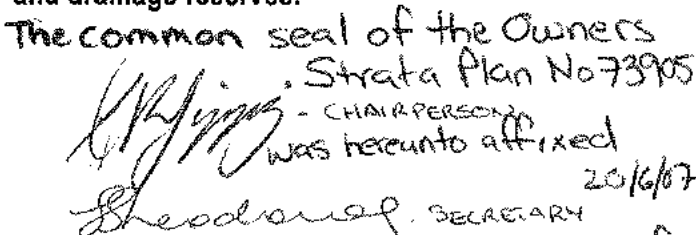 and drainage reserves.
The common seal of the Owners
Strata Plan No 73905
- CHAIRPERSON
was hereunto affixed
20/6/07
SECRETARY